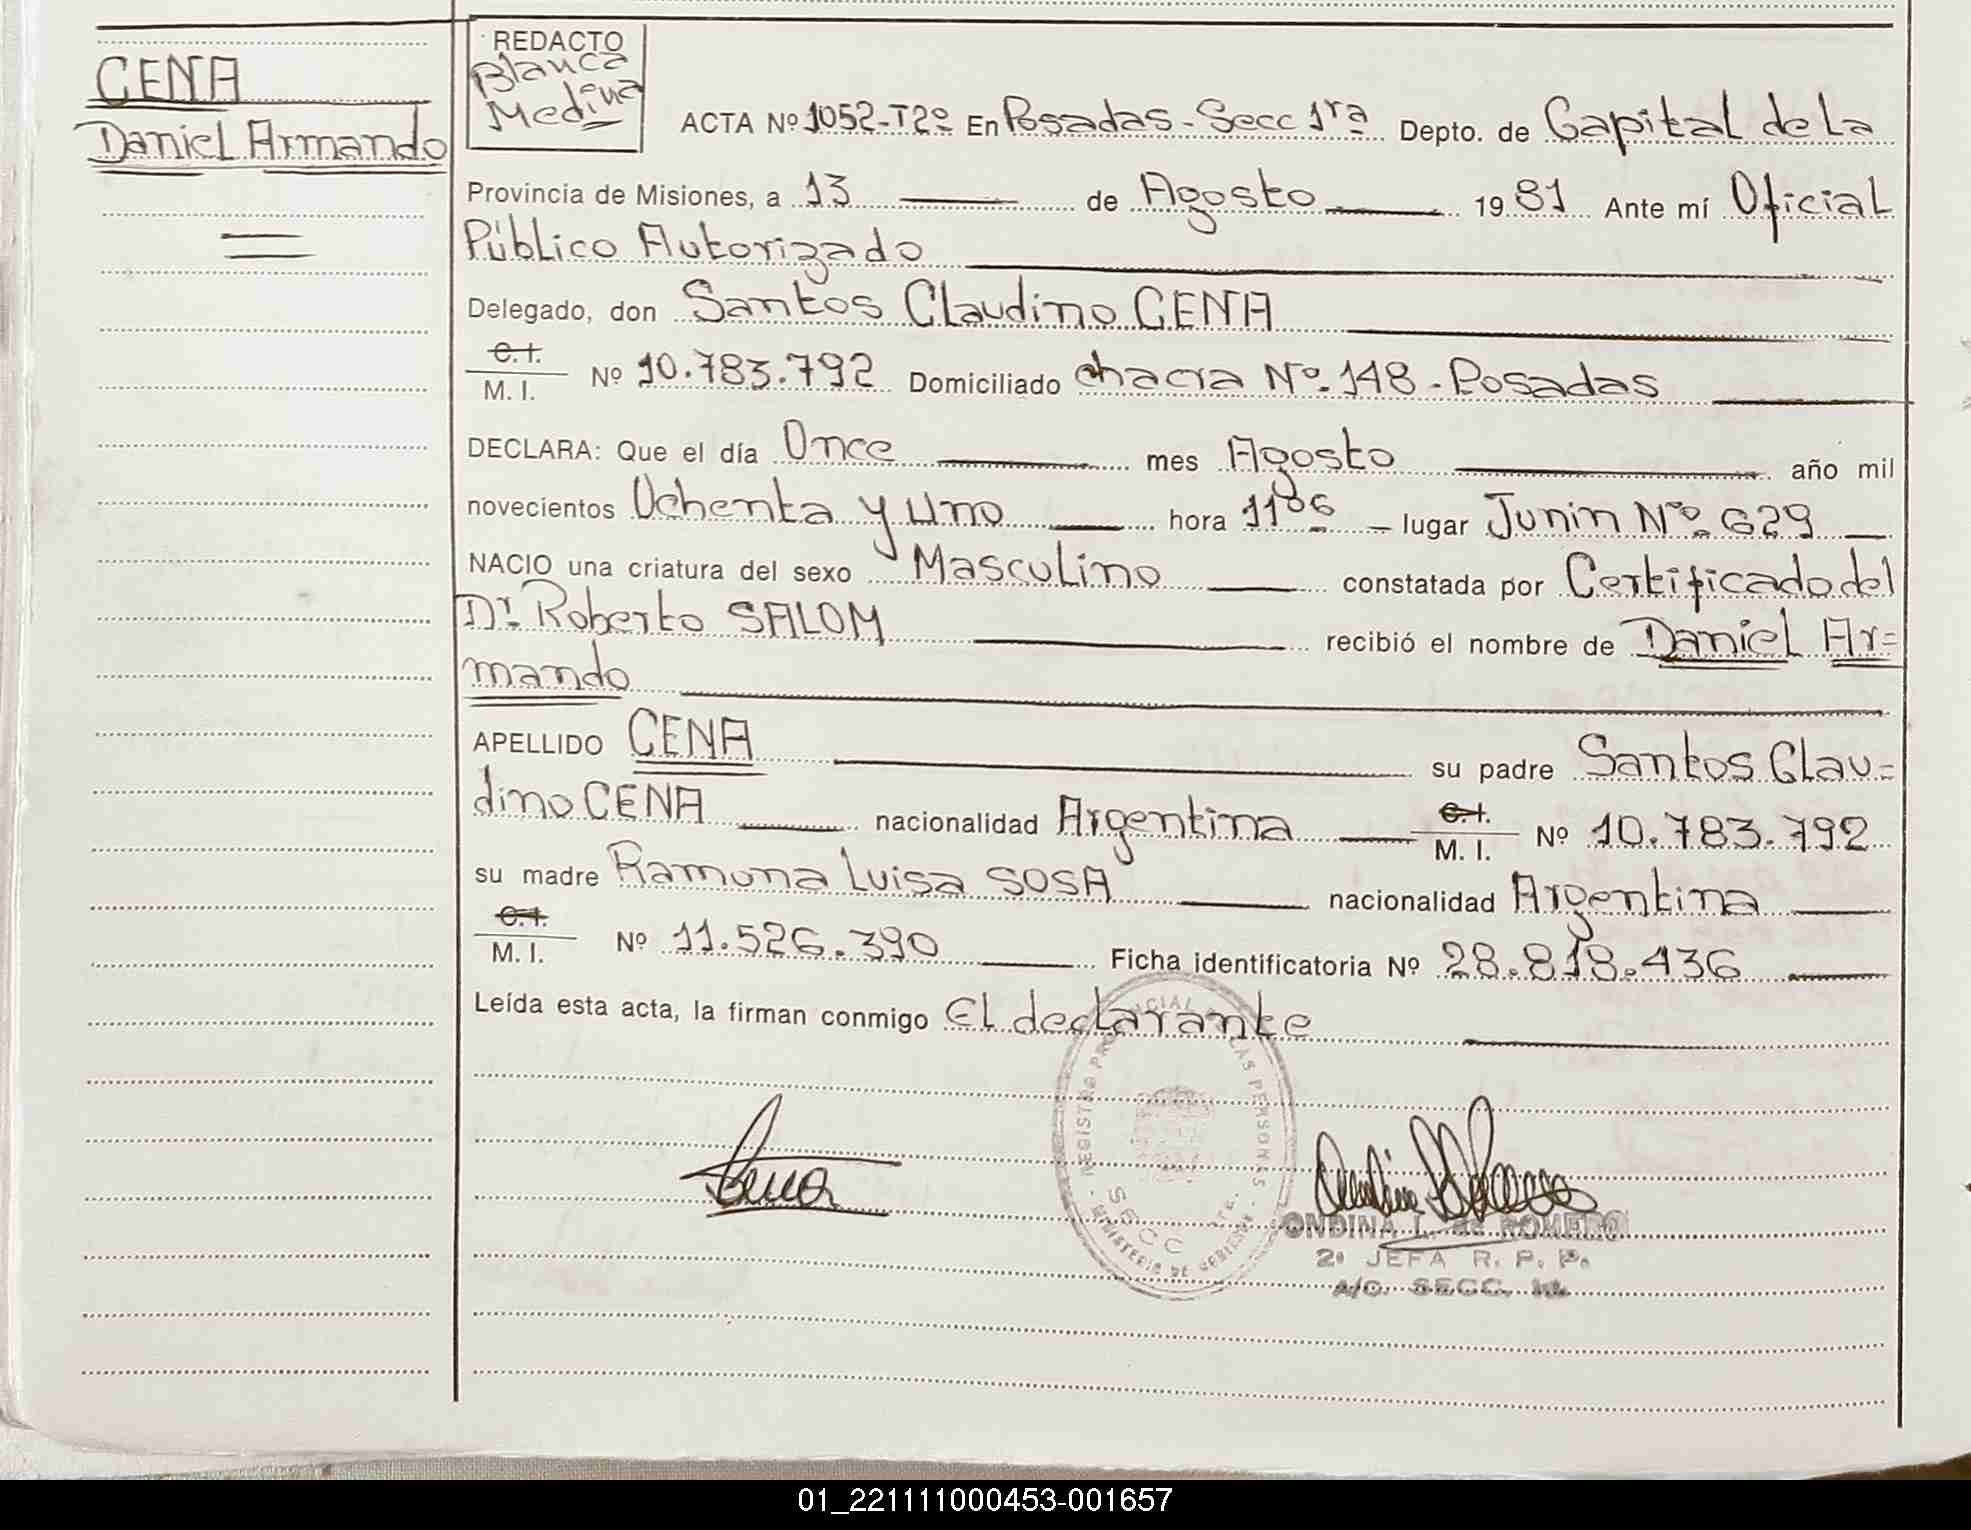 CENA
Daniel Armando
REDACTO
Blanca
Medina
ACTA Nº 1052-T2º En Posadas-Secc 1ra Depto. de Capital de La
Provincia de Misiones, a 13 de Agosto 1981 Ante mí Oficial
Público Autorizado
Delegado, don Santos Claudino CENA
C.I.
M. I. Nº 10.783.792 Domiciliado chacra Nº.148-Posadas
DECLARA: Que el día Once mes Agosto año mil
novecientos Ochenta y Uno hora 11 06 lugar Junin Nº 629
NACIO una criatura del sexo Masculino constatada por Certificado del
Dr. Roberto SALOM recibió el nombre de Daniel Ar=
mando
APELLIDO CENA su padre Santos Clau=
dino CENA nacionalidad Argentina C.I. M. I. Nº 10.783.792
su madre Ramona Luisa SOSA nacionalidad Argentina
C.I.
M. I. Nº 11.526.390 Ficha identificatoria Nº 28.818.436
Leída esta acta, la firman conmigo El declarante
REGISTRO PROVINCIAL DE LAS PERSONAS
SECC 1ra.
MINISTERIO DE GOBIERNO
Cena
ONDINA L. de ROMERO
2º JEFA R. P. P.
A/C. SECC. 1a.
01_221111000453-001657